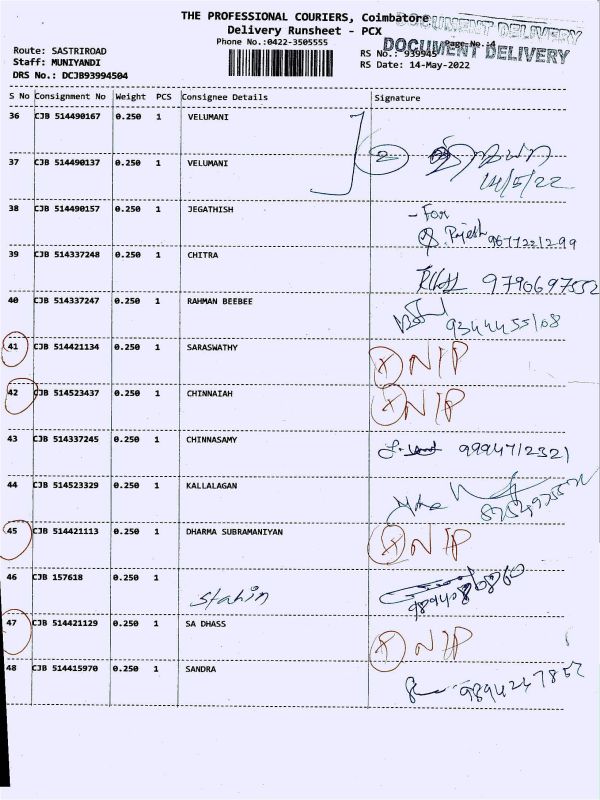 THE PROFESSIONAL COURIERS, Coimbatore
Delivery Runsheet - PCX
Phone No.:0422-3505555
DOCUMENT DELIVERY
DOCUMENT DELIVERY
Route: SASTRIROAD
Staff: MUNIYANDI
DRS No.: DCJB93994504
RS No.: 939945
RS Date: 14-May-2022
S No Consignment No Weight PCS Consignee Details Signature
36 CJB 514490167 0.250 1 VELUMANI
2
37 CJB 514490137 0.250 1 VELUMANI
14/5/22
38 CJB 514490157 0.250 1 JEGATHISH
- For
Rajesh 9677221299
39 CJB 514337248 0.250 1 CHITRA
9790697552
40 CJB 514337247 0.250 1 RAHMAN BEEBEE
9344455108
41 CJB 514421134 0.250 1 SARASWATHY
N/P
42 CJB 514523437 0.250 1 CHINNAIAH
N/P
43 CJB 514337245 0.250 1 CHINNASAMY
9994712321
44 CJB 514523329 0.250 1 KALLALAGAN
45 CJB 514421113 0.250 1 DHARMA SUBRAMANIYAN
N/P
46 CJB 157618 0.250 1
Stahin
47 CJB 514421129 0.250 1 SA DHASS
N/P
48 CJB 514415970 0.250 1 SANDRA
9894247852